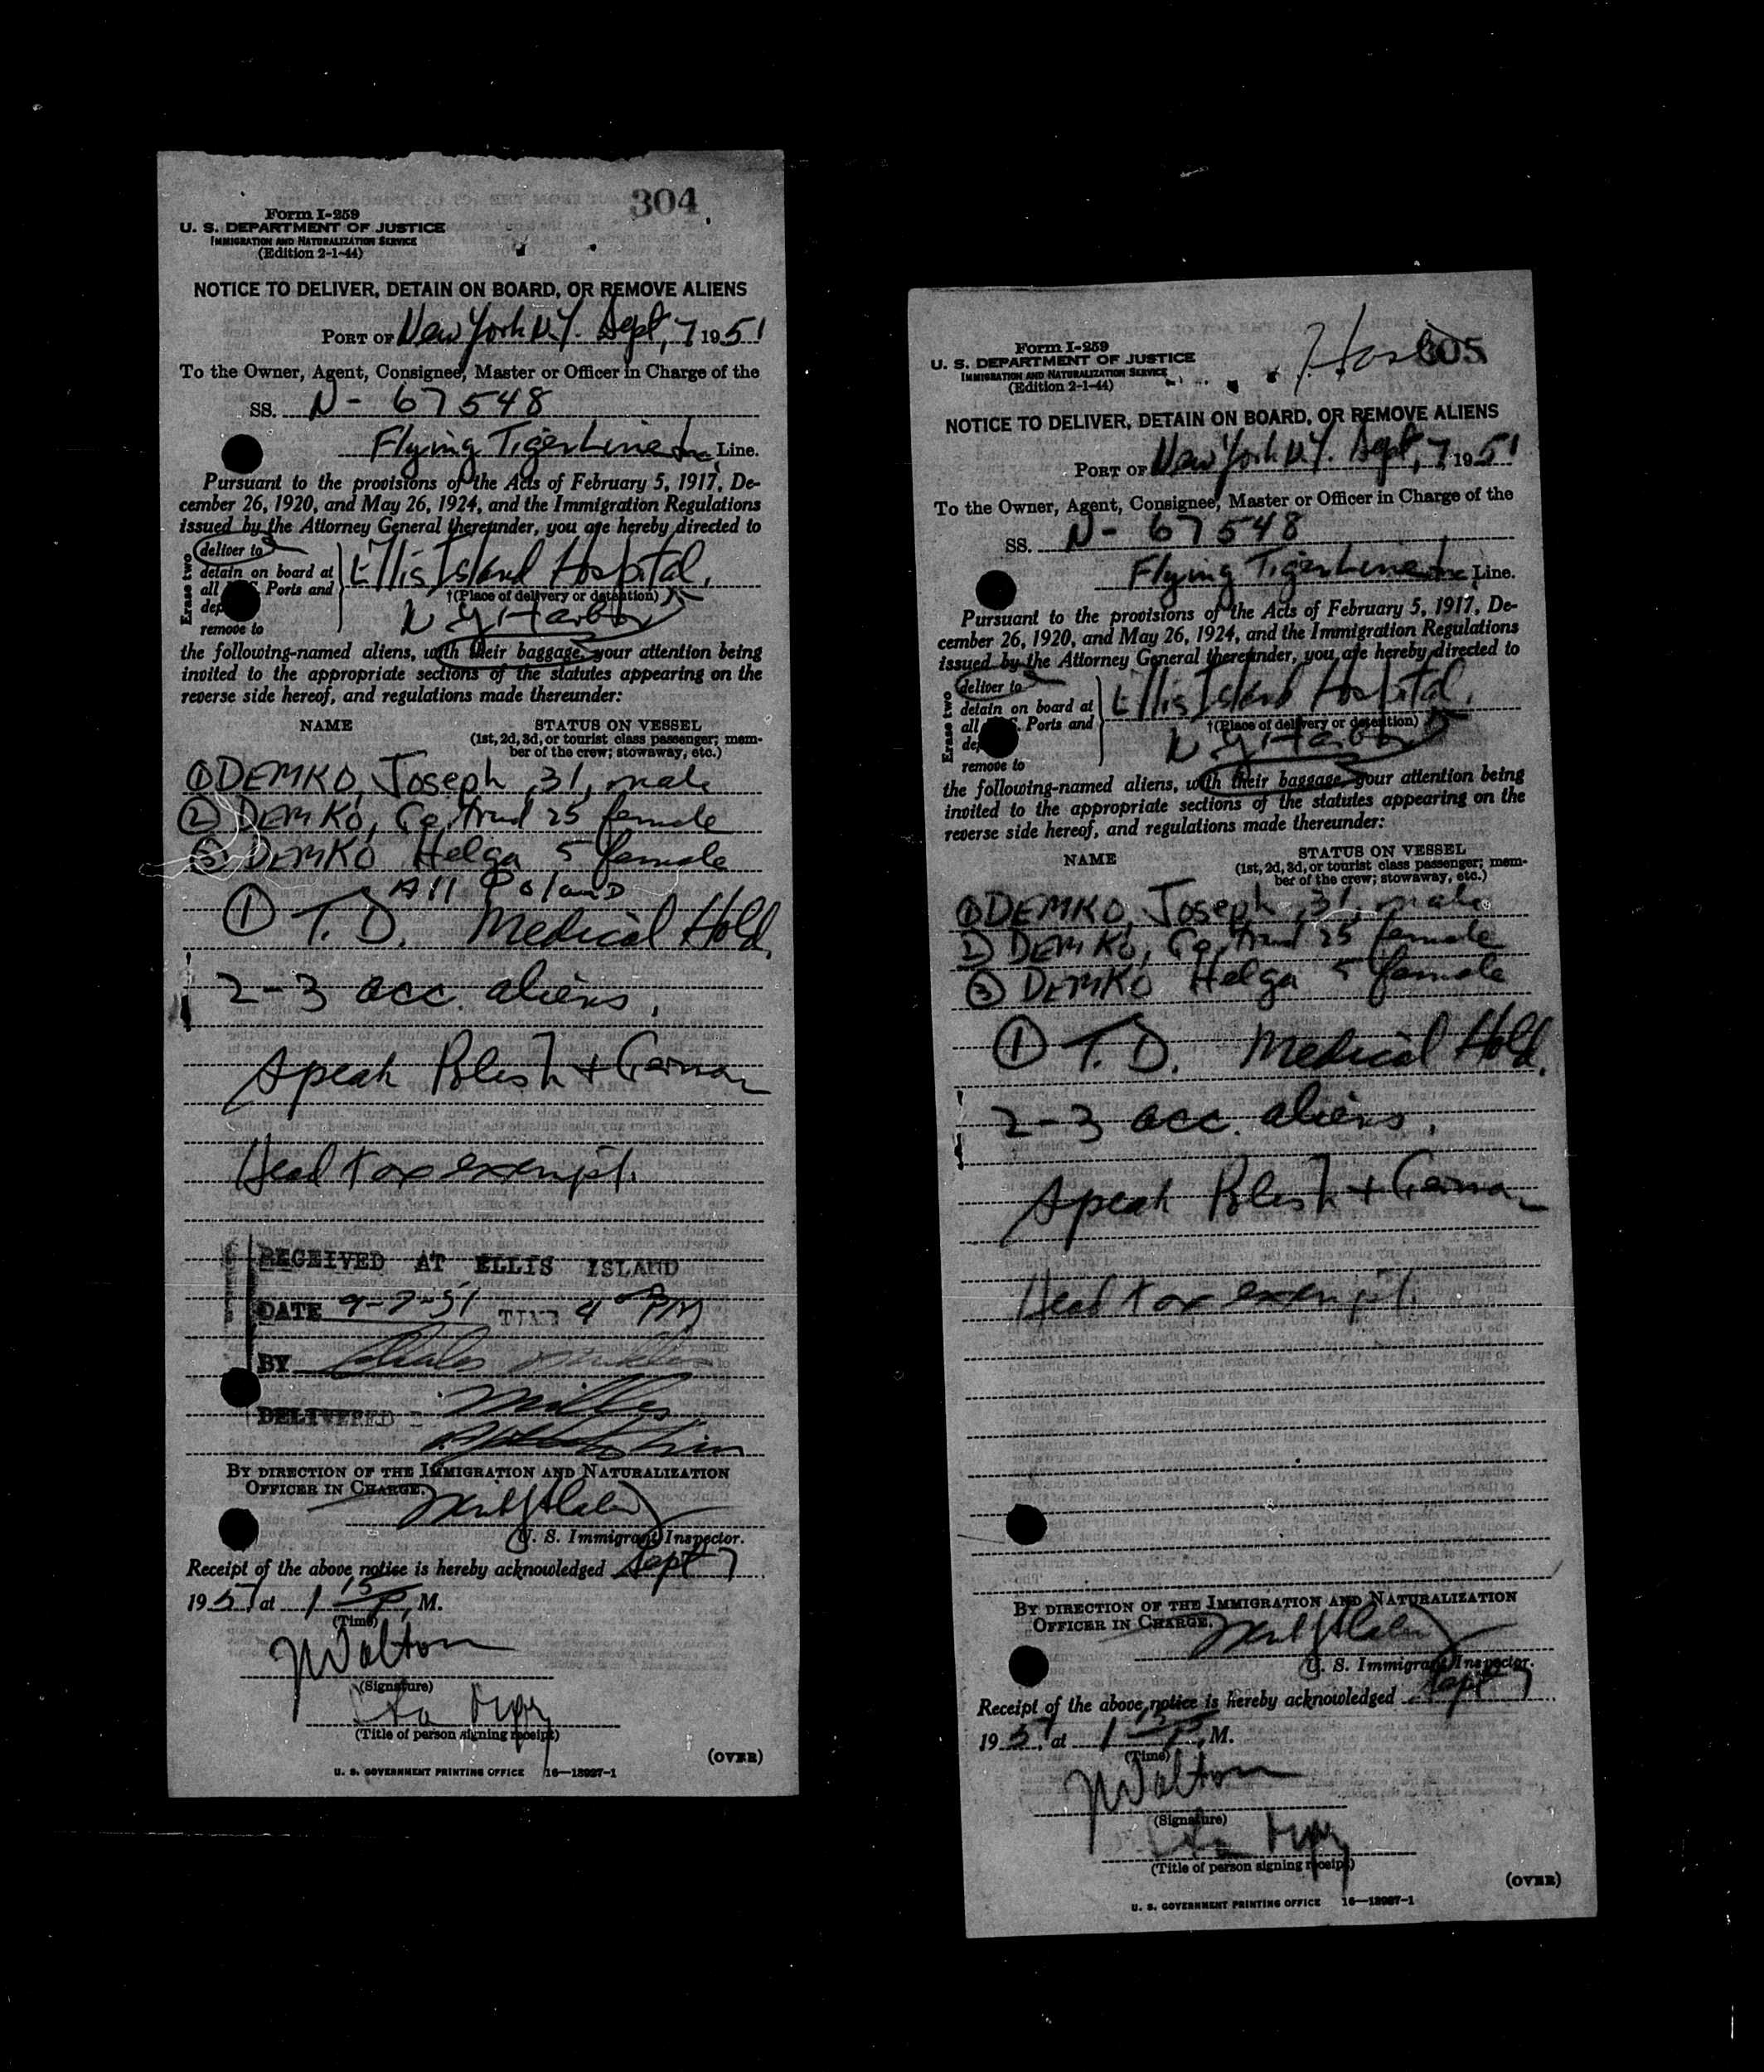 304
Form I-259
U. S. DEPARTMENT OF JUSTICE
IMMIGRATION AND NATURALIZATION SERVICE
(Edition 2-1-44)
NOTICE TO DELIVER, DETAIN ON BOARD, OR REMOVE ALIENS
PORT OF New York N.Y. Sept, 7 1951
To the Owner, Agent, Consignee, Master or Officer in Charge of the
SS. N- 67548
Flying Tiger Line Inc, Line.
Pursuant to the provisions of the Acts of February 5, 1917, De-
cember 26, 1920, and May 26, 1924, and the Immigration Regulations
issued by the Attorney General thereunder, you are hereby directed to
Erase two
deliver to
detain on board at
all Ports and
dep
remove to
Ellis Island Hospital,
†(Place of delivery or detention)
N Y Harbor
the following-named aliens, with their baggage, your attention being
invited to the appropriate sections of the statutes appearing on the
reverse side hereof, and regulations made thereunder:
NAME STATUS ON VESSEL
(1st, 2d, 3d, or tourist class passenger; mem-
ber of the crew; stowaway, etc.)
① DEMKO, Joseph, 31, male
② DEMKO, 25 female
③ DEMKO Helga 5 female
All Poland
① T. D. Medical Hold,
2-3 acc. aliens,
Speak Polish + German
Head tax exempt.
RECEIVED AT ELLIS ISLAND
DATE 9-7-51 TIME 4 PM
BY Charles
DELIVERED
BY DIRECTION OF THE IMMIGRATION AND NATURALIZATION
OFFICER IN CHARGE.
U. S. Immigrant Inspector.
Receipt of the above notice is hereby acknowledged Sept 7
1951 at 1 15 P, M.
(Time)
Walton
(Signature)
(Title of person signing receipt)
(OVER)
U. S. GOVERNMENT PRINTING OFFICE 16—13927-1
Hosp 305
Form I-259
U. S. DEPARTMENT OF JUSTICE
IMMIGRATION AND NATURALIZATION SERVICE
(Edition 2-1-44)
NOTICE TO DELIVER, DETAIN ON BOARD, OR REMOVE ALIENS
PORT OF New York N.Y. Sept, 7, 1951
To the Owner, Agent, Consignee, Master or Officer in Charge of the
SS. N- 67548
Flying Tiger Line Inc, Line.
Pursuant to the provisions of the Acts of February 5, 1917, De-
cember 26, 1920, and May 26, 1924, and the Immigration Regulations
issued by the Attorney General thereunder, you are hereby directed to
Erase two
deliver to
detain on board at
all Ports and
dep
remove to
Ellis Island Hospital,
†(Place of delivery or detention)
N Y Harbor
the following-named aliens, with their baggage, your attention being
invited to the appropriate sections of the statutes appearing on the
reverse side hereof, and regulations made thereunder:
NAME STATUS ON VESSEL
(1st, 2d, 3d, or tourist class passenger; mem-
ber of the crew; stowaway, etc.)
① DEMKO, Joseph, 31, male
② DEMKO, 25 female
③ DEMKO Helga 5 female
① T. D. Medical Hold,
2-3 acc. aliens,
Speak Polish + German
Head tax exempt.
BY DIRECTION OF THE IMMIGRATION AND NATURALIZATION
OFFICER IN CHARGE.
U. S. Immigrant Inspector.
Receipt of the above notice is hereby acknowledged Sept 7
1951 at 1 15 P, M.
(Time)
Walton
(Signature)
(Title of person signing receipt)
(OVER)
U. S. GOVERNMENT PRINTING OFFICE 16—13927-1